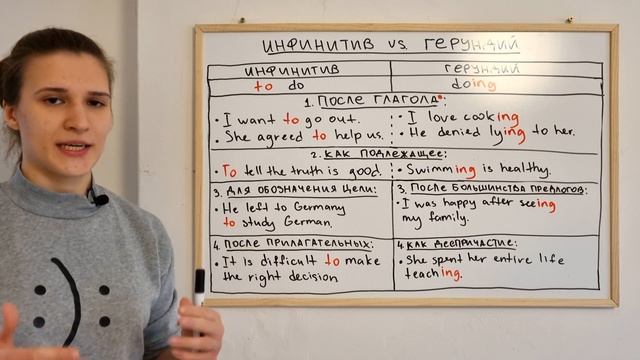 ИНФИНИТИВ vs. ГЕРУНДИЙ
ИНФИНИТИВ
ГЕРУНДИЙ
to do
doing
1. ПОСЛЕ ГЛАГОЛА*:
• I want to go out.
• She agreed to help us.
• I love cooking
• He denied lying to her.
2. КАК ПОДЛЕЖАЩЕЕ:
• To tell the truth is good.
• Swimming is healthy.
3. ДЛЯ ОБОЗНАЧЕНИЯ ЦЕЛИ:
• He left to Germany
to study German.
3. ПОСЛЕ БОЛЬШИНСТВА ПРЕДЛОГОВ:
• I was happy after seeing
my family.
4. ПОСЛЕ ПРИЛАГАТЕЛЬНЫХ:
• It is difficult to make
the right decision
4. КАК ДЕЕПРИЧАСТИЕ:
• She spent her entire life
teaching.